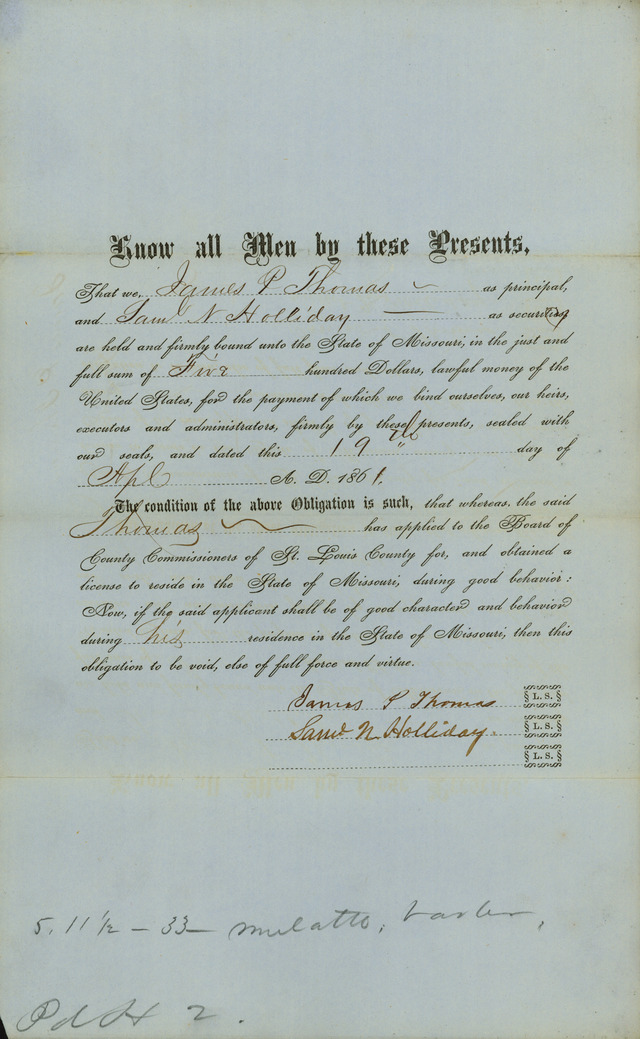 Know all Men by these Presents,
That we, James P Thomas as principal,
and Sam N Holliday as security
are held and firmly bound unto the State of Missouri, in the just and
full sum of Five hundred Dollars, lawful money of the
United States, for the payment of which we bind ourselves, our heirs,
executors and administrators, firmly by these presents, sealed with
our seals, and dated this 19th day of
Apl A. D. 1861.
The condition of the above Obligation is such, that whereas, the said
Thomas has applied to the Board of
County Commissioners of St. Louis County for, and obtained a
license to reside in the State of Missouri, during good behavior:
Now, if the said applicant shall be of good character and behavior
during his residence in the State of Missouri, then this
obligation to be void, else of full force and virtue.
James P Thomas L. S.
Saml N Holliday. L. S.
L. S.
5. 11 1/2 - 33 - mulatto, barber,
Pd 2.